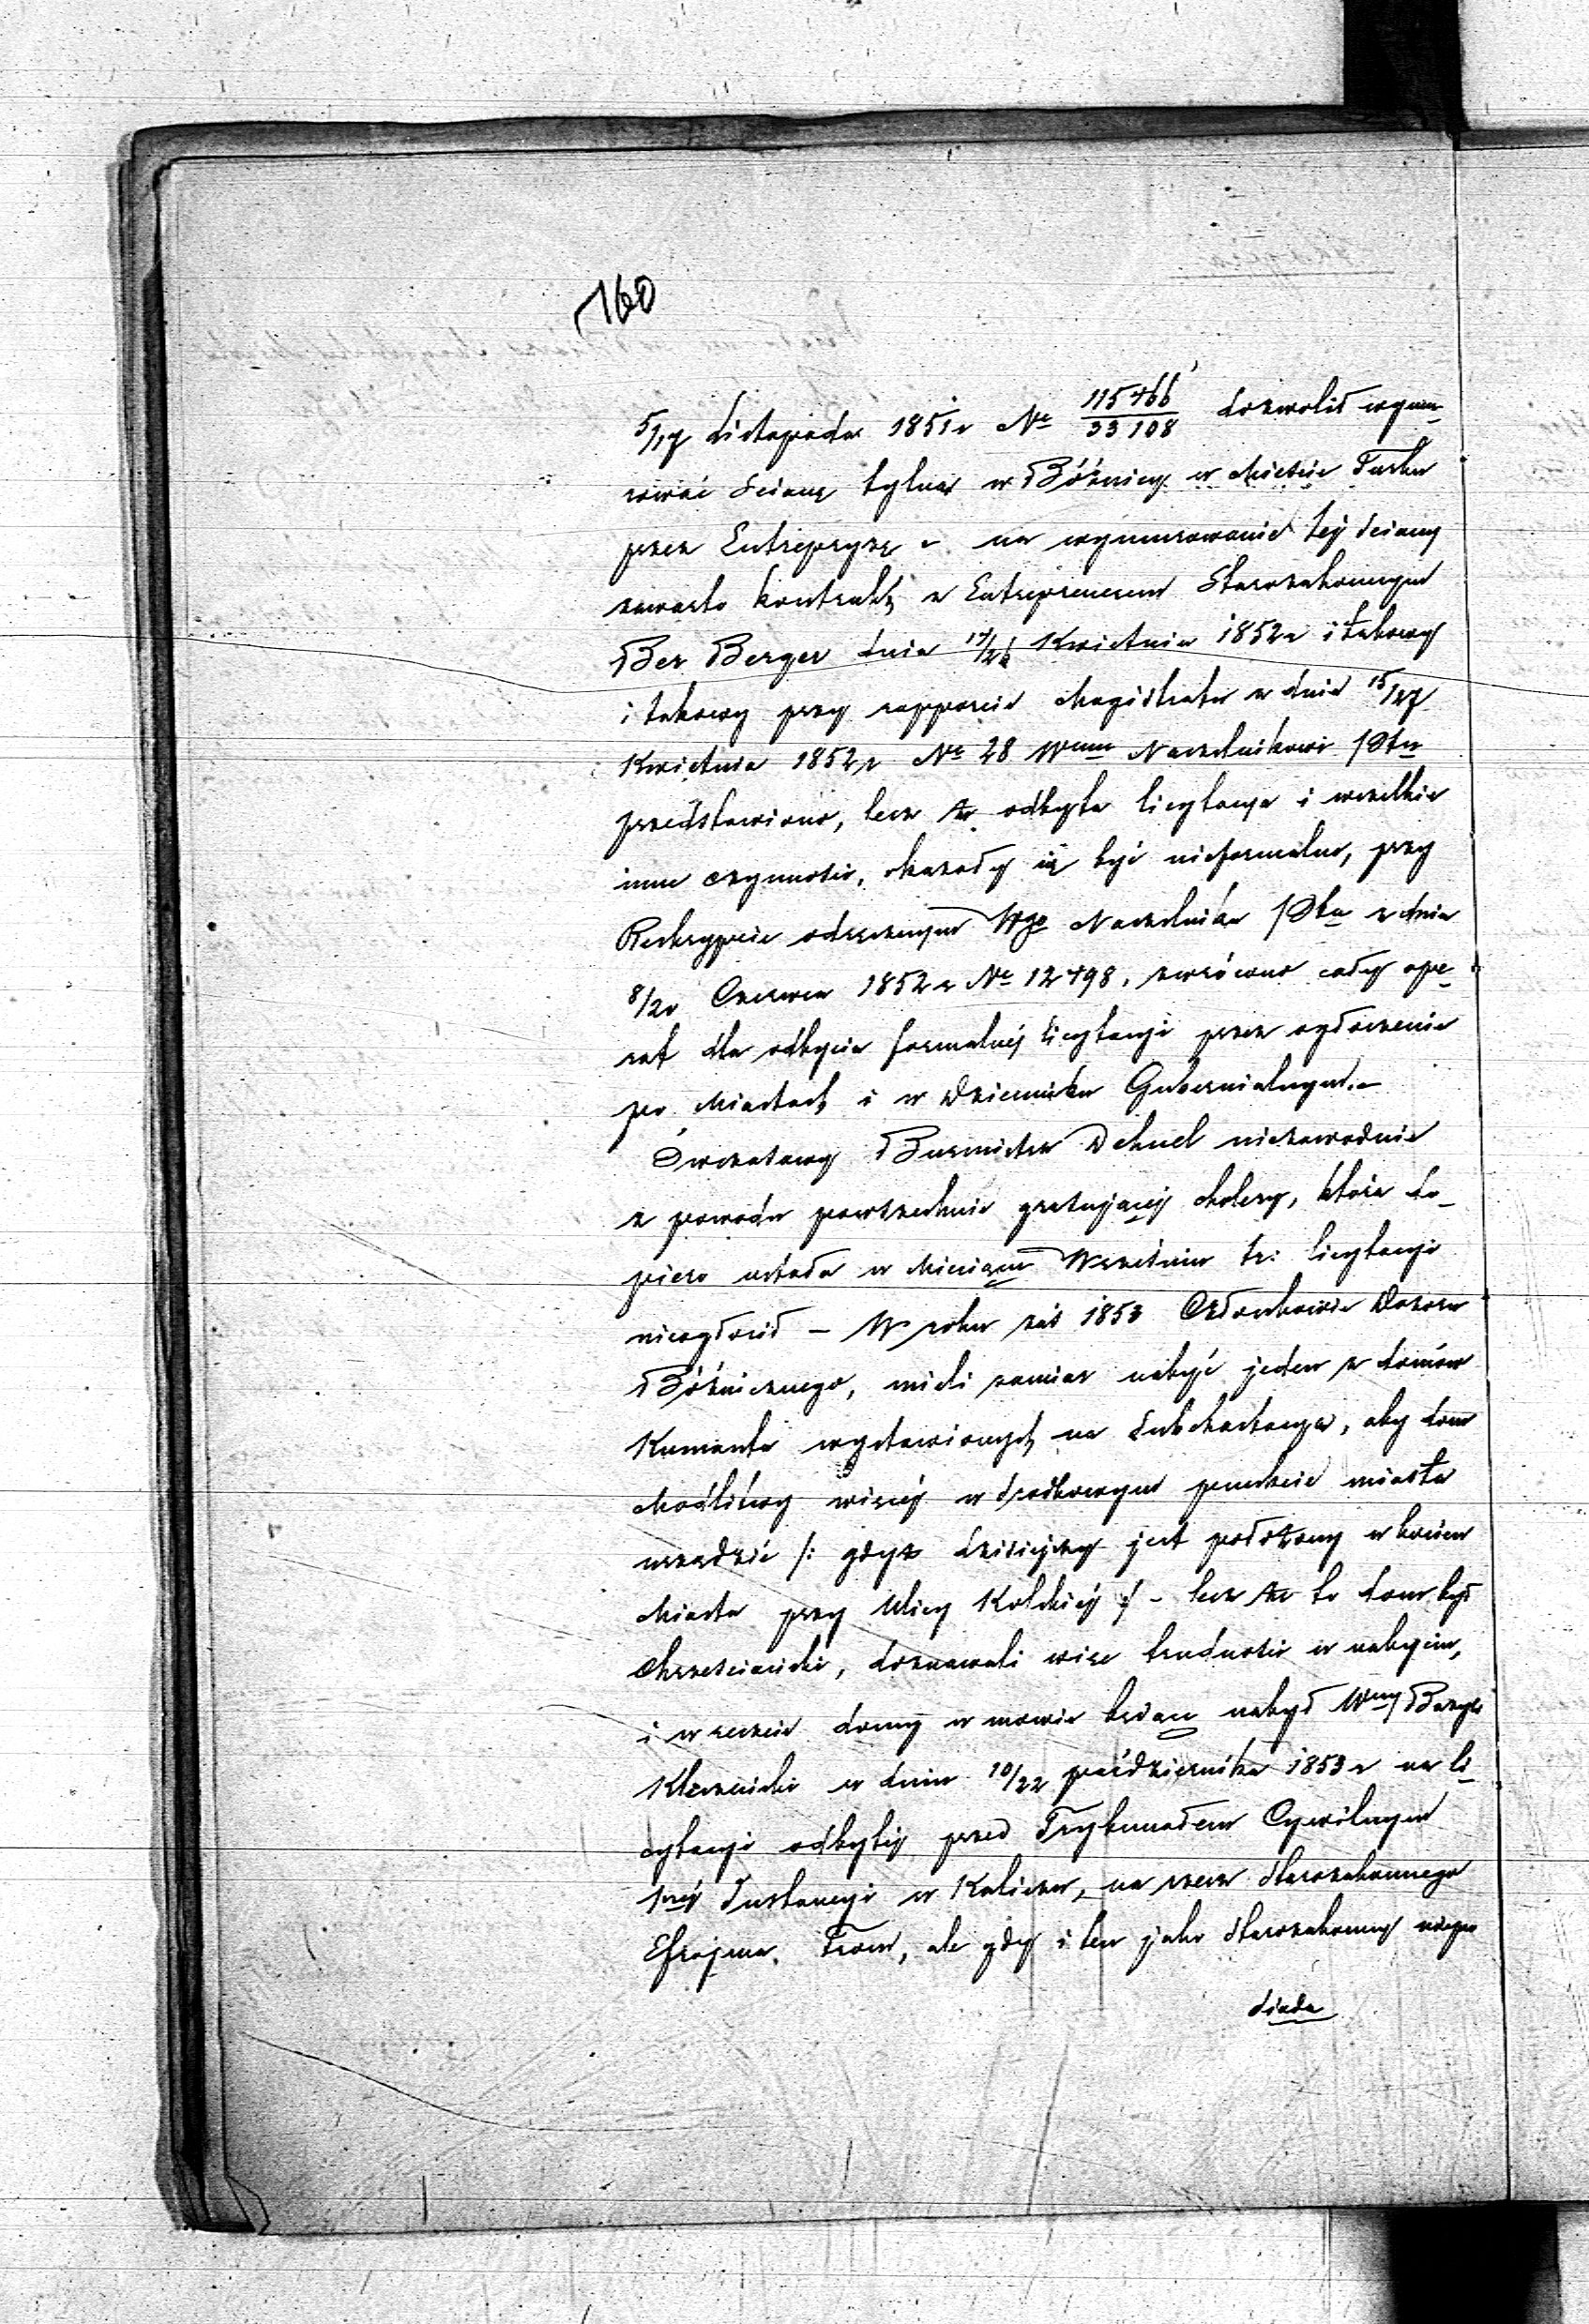 160
5/17 Listopada 1851 r No 115466/33108 dozwolił wymu_
rować ścianę tylną w Bóżnicy w Mieście Turku
przez Entrepryzę - na wymurowanie tej ściany
zawarto kontrakt z Entreprenerem Starozakonnym
Ber Berger dnia 14/26 Kwietnia 1852 r i takowy
i takowy przy rapporcie Magistratu z dnia 15/27
Kwietnia 1852 r No 28 Wmu Naczelnikowi Ptu
przedstawiono, lecz że odbyta licytacya i wszelkie
inne czynności, okazały się być nieformalne, przy
Reskrypcie odręcznym Wgo Naczelnika Ptu z dnia
8/20 Czerwca 1852 r No 12498, zwrócono cały ope_
rat dla odbycia formalnéj licytacyi przez ogłoszenie
po Miastach i w Dzienniku Gubernialnym.-
Ówczasowy Burmistrz Dehnel niezawodnie
z powodu powszechnie grasującéj cholery, która do_
piero ustała w Miesiącu Wrześniu tr: licytacyi
nieogłosił - W roku zaś 1853 Członkowie Dozoru
Bóżnicznego, mieli zamiar nabyć jeden z domów
Kumanta wystawionych na Subhastacyą, aby dom
Modlitwy więcéj w środkowym punkcie miasta
urządzić /: gdyż dzisiejszy jest położony w końcu
Miasta przy Ulicy Kolskiéj :/ - lecz że to dom był
chrześciański, doznawali więc trudności w nabyciu,
i w reszcie domy w mowie będące nabył Wny Bazyli
Kleczeński w dniu 10/22 października 1853 r na li_
cytacyi odbytéj przed Trybunałem Cywilnym
1széj Instancyi w Kaliszu, na rzecz starozakonnego
Efrojma From, ale gdy i ten jako starozakonny niepo
siada